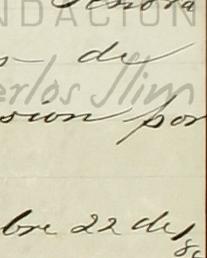 FUNDACIÓN
Señora
s de
Carlos Slim
sion por
bre 22 de 18